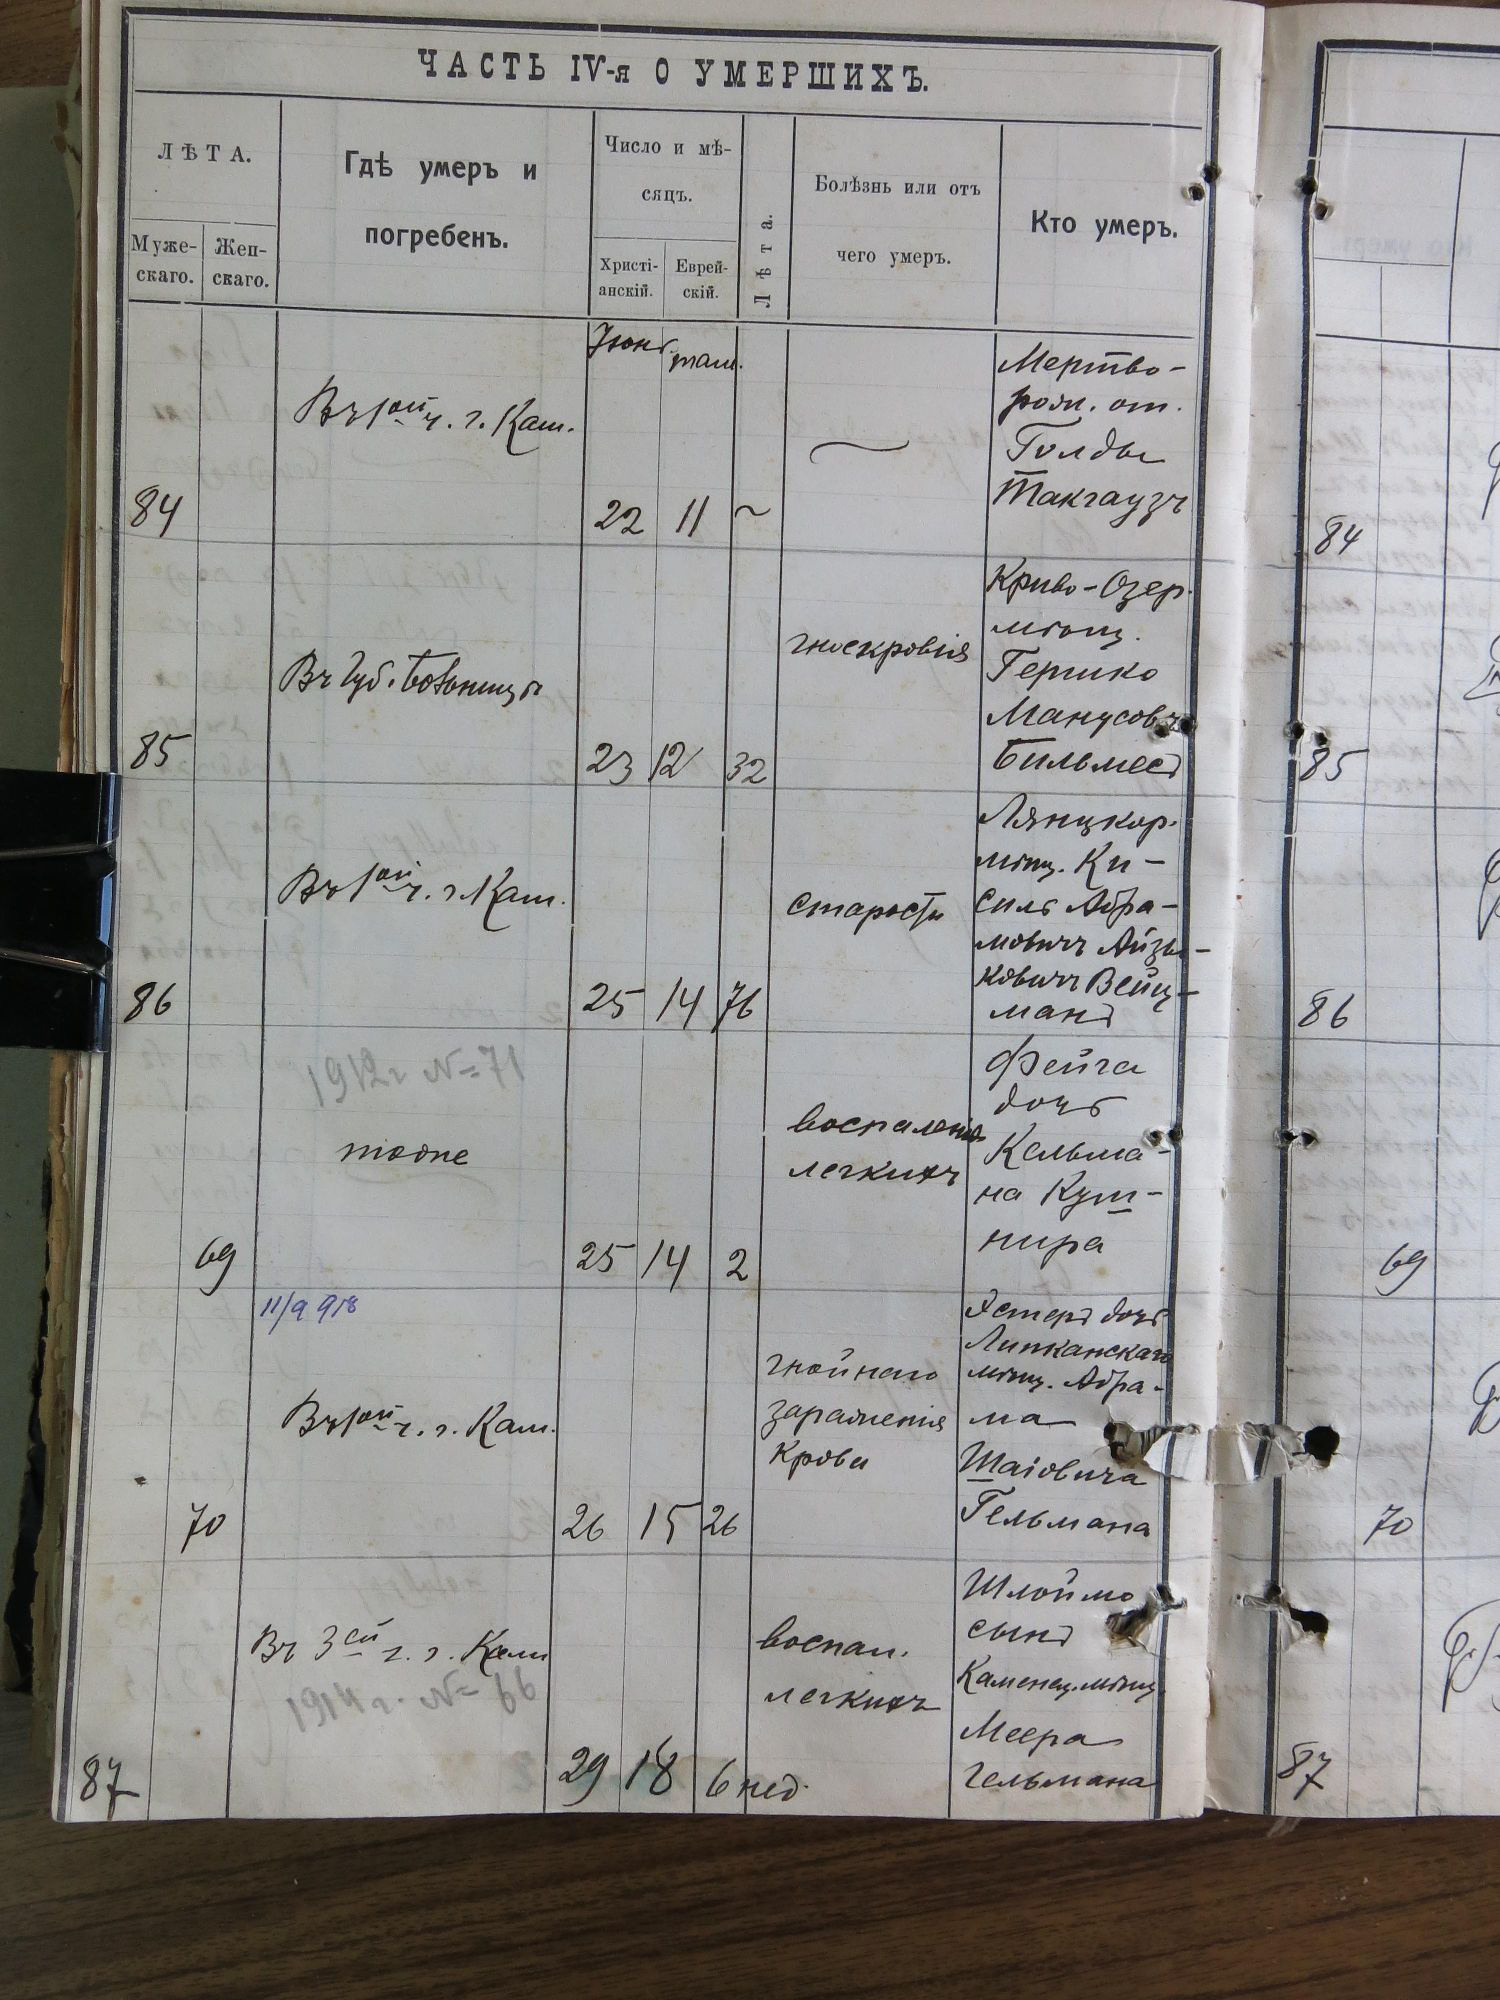 ЧАСТЬ IV-я О УМЕРШИХЪ.
ЛѢТА.
Муже-
скаго.
Жен-
скаго.
Гдѣ умеръ и
погребенъ.
Число и мѣ-
сяцъ.
Христі-
анскій.
Еврей-
скій.
Лѣта.
Болѣзнь или отъ
чего умеръ.
Кто умеръ.
84
Въ 1ой ч. г. Кам.
Іюнь
там.
22
11
Мертво-
рожд. от.
Голды
Такгаузъ
84
85
Въ Губ. больницѣ
23
12
32
гноекровія
Криво-Озер.
мѣщ.
Гершко
Манусовъ
Бильмесъ
85
86
Въ 1ой ч. г. Кам.
25
14
76
старости
Лянцкор.
мѣщ. Ки-
силь Абра-
мовичъ Айзы-
ковичъ Вейц-
манъ
86
1912г №71
69
тоже
25
14
2
воспаленіе
легкихъ
Фейга
дочь
Кельма-
на Куш-
нира
69
11/9 918
70
Въ 1ой ч. г. Кам.
26
15
26
гнойнаго
зараженія
крови
Эстеръ дочь
Липканскаго
мѣщ. Абра-
ма
Шаіовича
Гельмана
70
87
Въ 3ей ч. г. Кам
1914 г. №66
29
18
6 нед.
воспал.
легкихъ
Шлоймо
сынъ
Каменец. мѣщ.
Меера
Гельмана
87